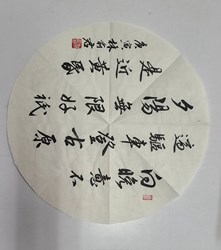 向晚意不
適驅車登古原
夕陽無限好祇
是近黃昏
庚寅